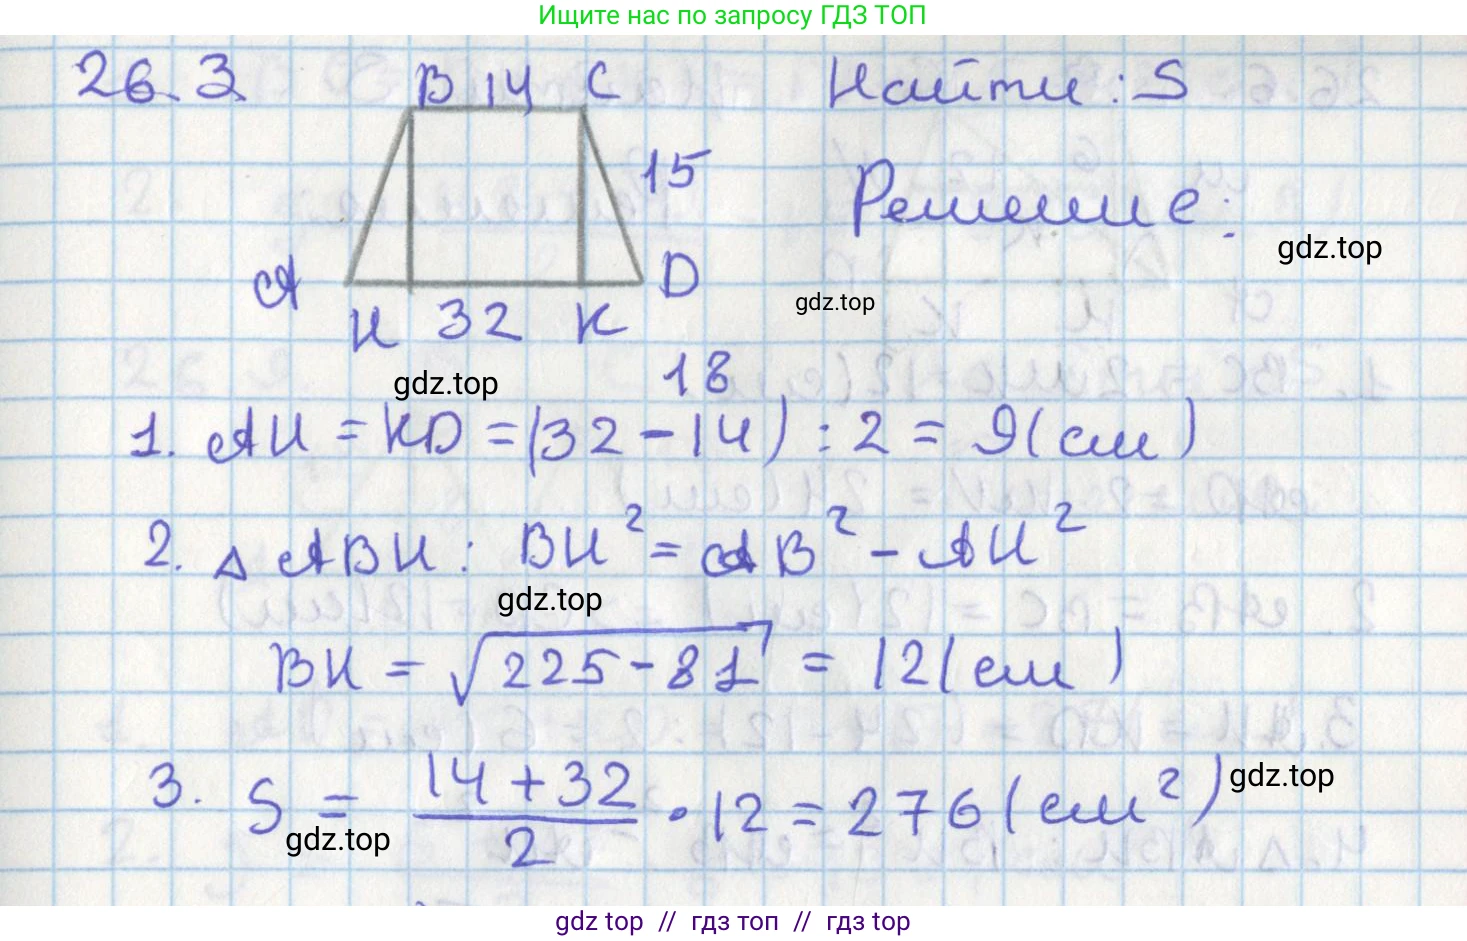 Ищите нас по запросу ГДЗ ТОП
26.3
B 14 C
Найти: S
15
Решение:
gdz.top
A
D
gdz.top
H 32 K
gdz.top
18
1. AH = KD = (32 - 14) : 2 = 9 (см)
2. △ABH: BH² = AB² - AH²
gdz.top
BH = √225 - 81 = 12 (см)
3. S = 14 + 32 / 2 · 12 = 276 (см²)
gdz.top
gdz.top
gdz top // гдз топ // гдз top